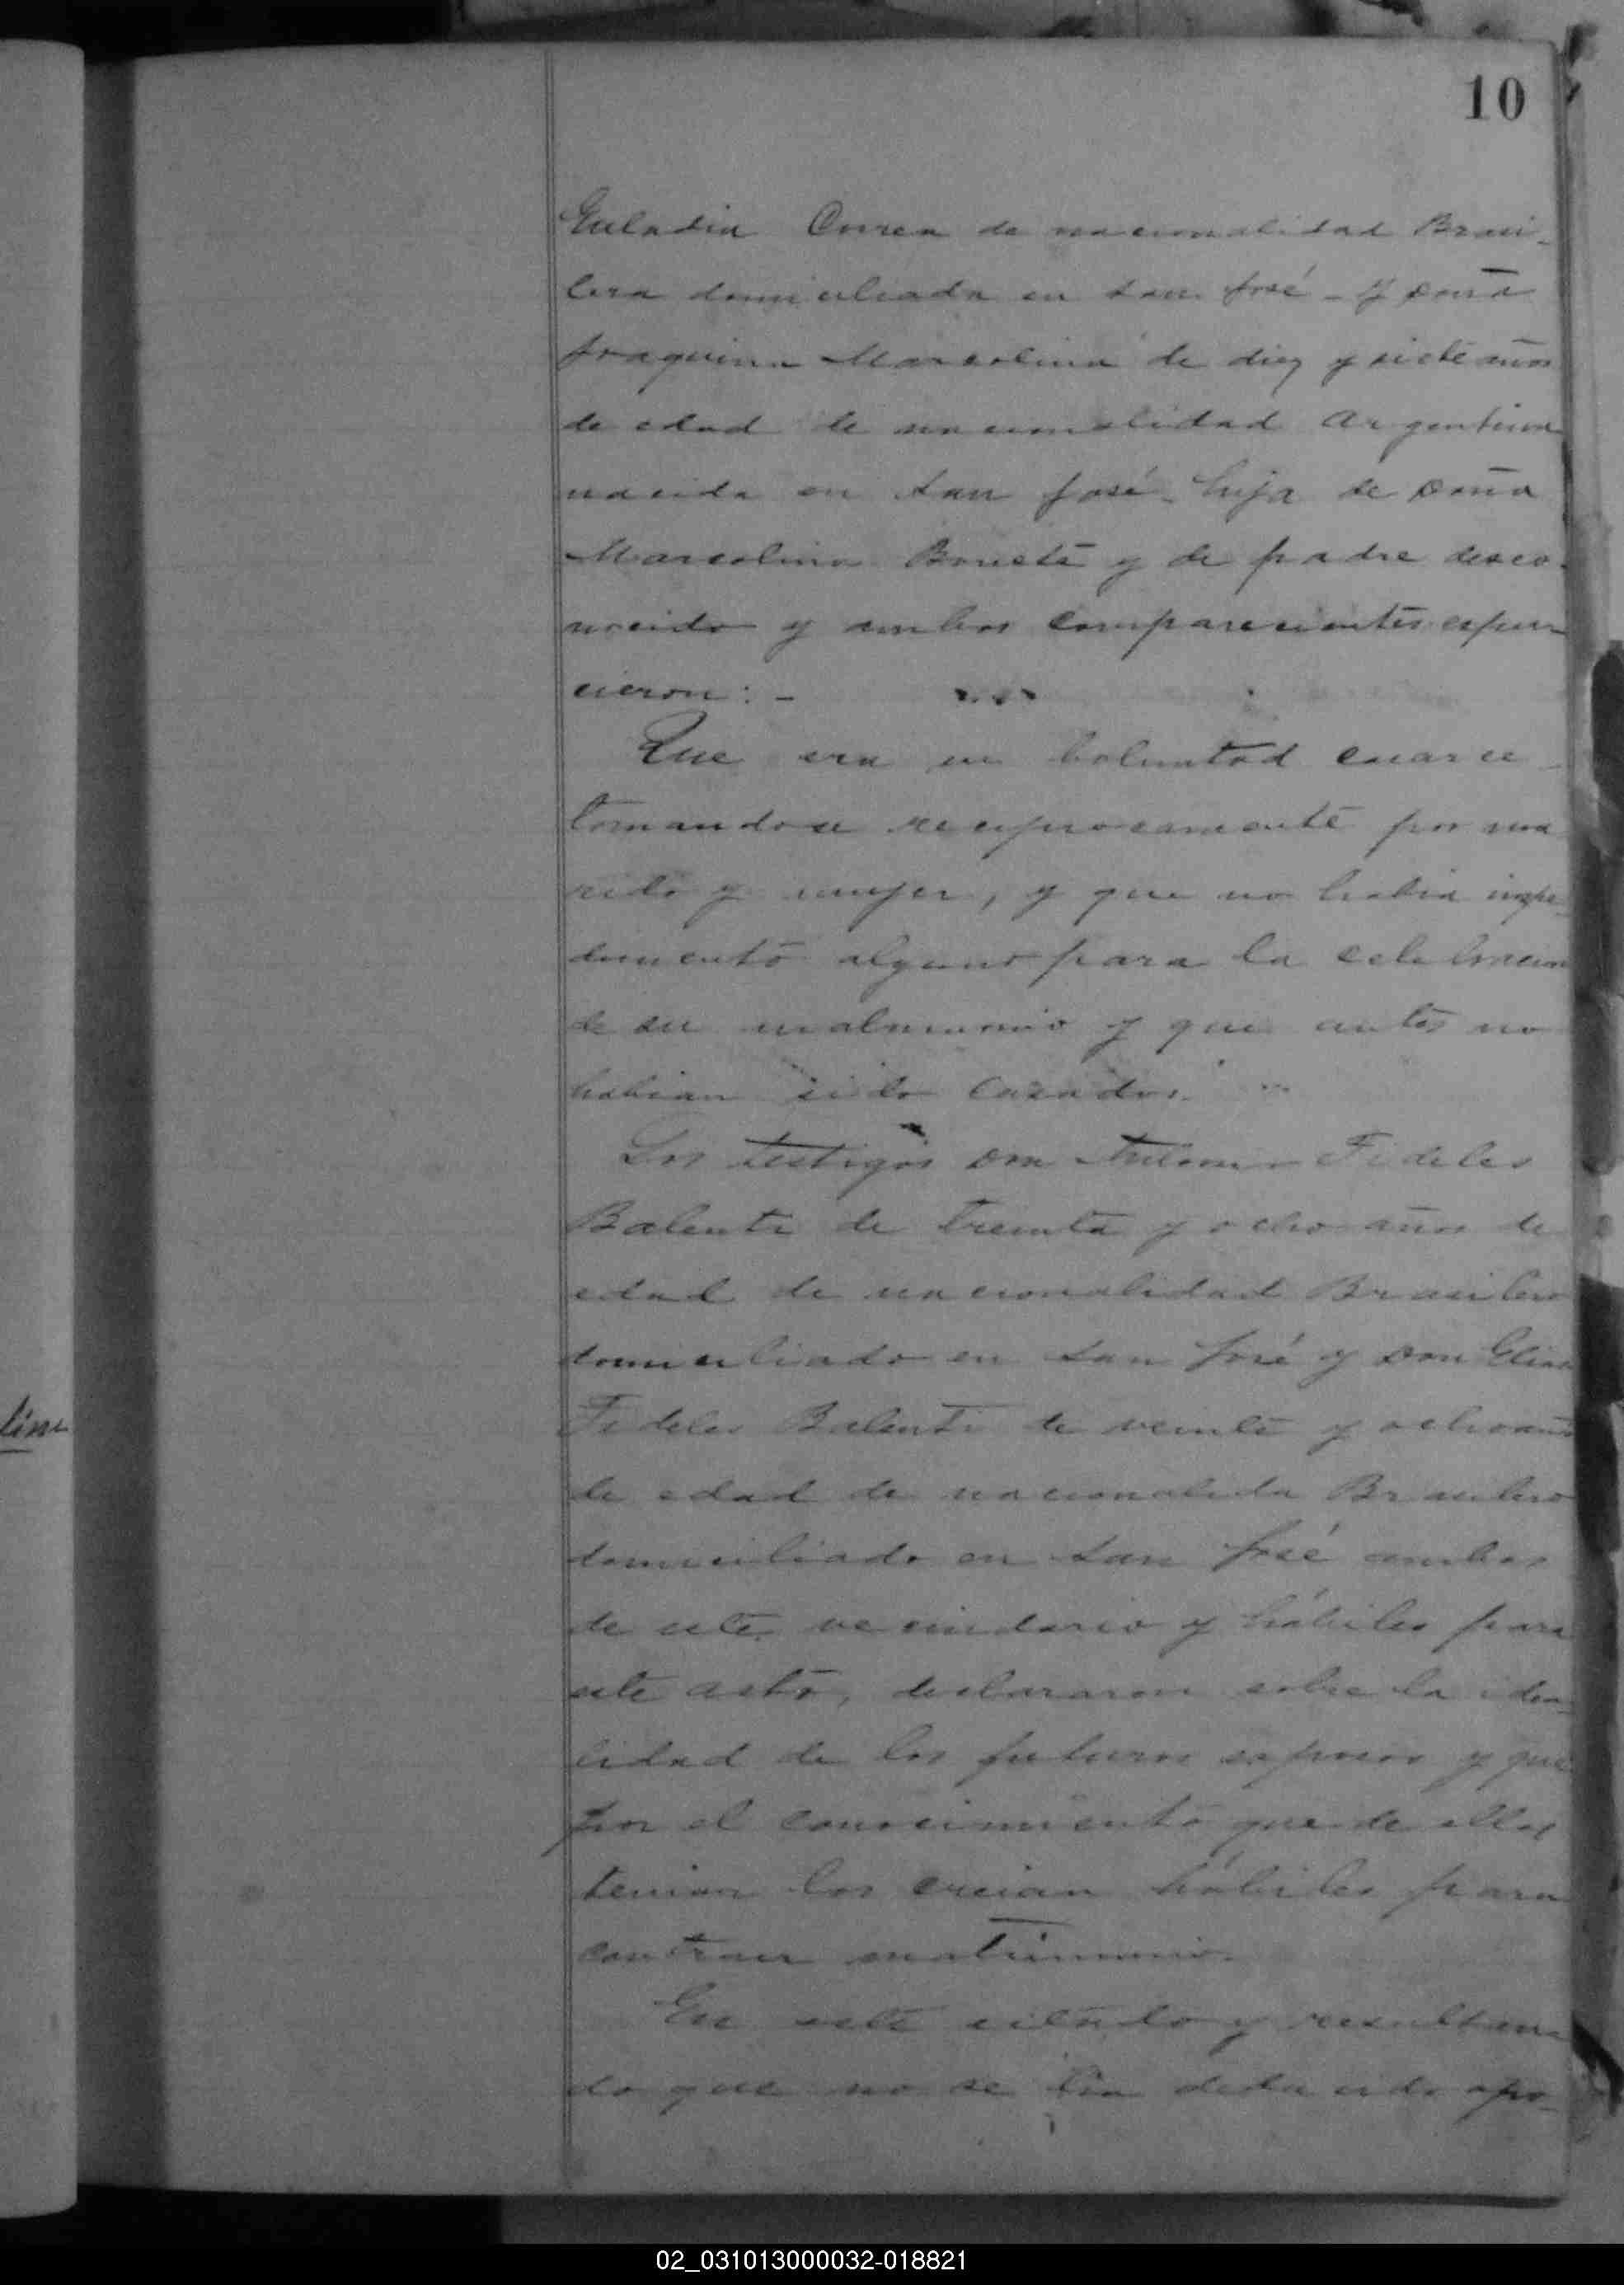 10
Euladia Correa de nacionalidad Brasi-
lera domiciliada en San José - y doña
Joaquina Marcolina de diez y siete años
de edad de nacionalidad Argentina
nacida en San José hija de doña
Marcolina y de padre desco-
nocido y ambos comparecientes espu-
cieron: -
Que era su boluntad casarse
tomandose reciprocamente por ma
rido y mujer, y que no habia impe-
dimento alguno para la celebracion
de su matrimonio y que antes no
habian sido casados.
Los testigos Don Antonio Fideles
Balente de treinta y ocho años de
edad de nacionalidad Brasilero
domiciliado en San José y Don Elias
Fideles Balente de veinte y ocho años
de edad de nacionalida Brasilero
domiciliado en San José ambos
de este vecindario y hábiles para
este acto, declararon sobre la iden-
tidad de los futuros esposos y que
por el conocimiento que de ellos
tenian los creian hábiles para
contraer matrimonio.
En este estado y resultan
do que no se ha deducido opo-
02_031013000032-018821